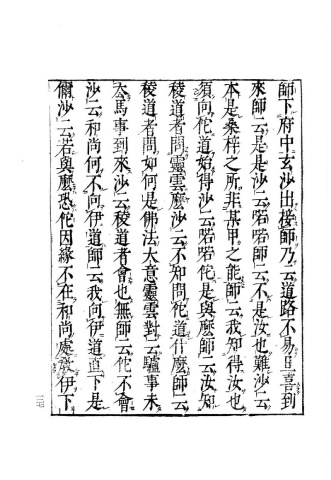 師下府中玄沙出接師乃云道路不易且喜到
來師云是是沙云喏喏師云不是汝也難沙云
本是桑梓之所非某甲之能師云我知得汝也
須向佗道始得沙云喏喏佗是與麼師云汝知
稜道者問靈雲麼沙云不知問佗道什麼師云
稜道者問如何是佛法大意靈雲對云驢事未
去馬事到來沙云稜道者會也無師云佗不會
沙云和尚何不向伊道師云我向伊道直下是
儞沙云若與麼恐佗因緣不在和尚處敎伊下